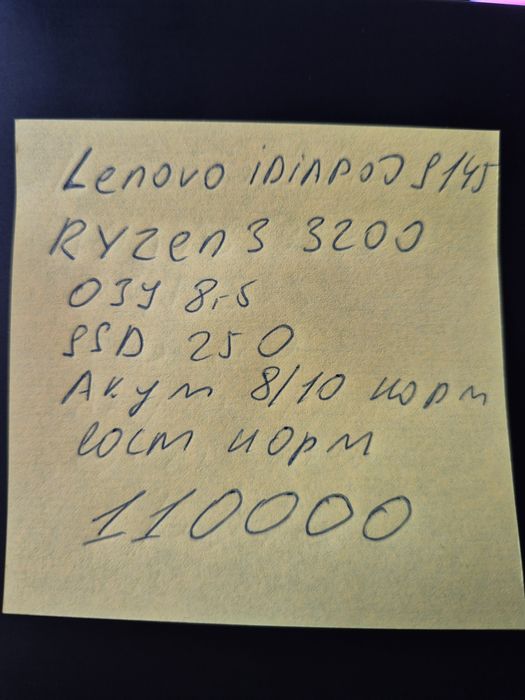 Lenovo iDiAPOD S145
RYZen 3 3200
ОЗУ 8,5
SSD 250
Акум 8/10 норм
сост норм
110000